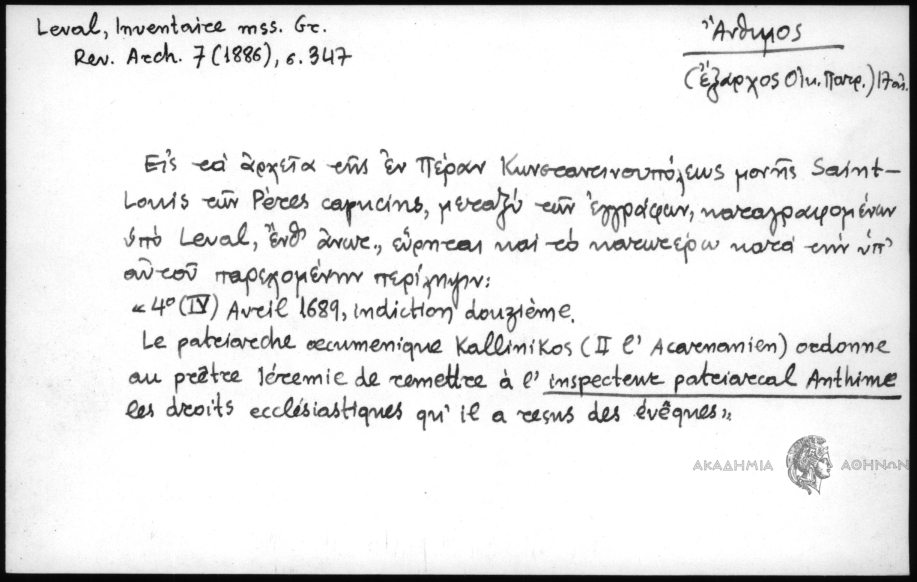 Leval, Inventaire mss. Gr.
Rev. Arch. 7 (1886), σ. 347
Ἄνθιμος
(ἔξαρχος Οἰκ. Πατρ.) 17 αἰ.
Εἰς τὰ ἀρχεῖα τῆς ἐν Πέραν Κωνσταντινουπόλεως μονῆς Saint-
Louis τῶν Pères capucins, μεταξὺ τῶν ἐγγράφων, καταγραφομένων
ὑπὸ Leval, ἔνθ' ἀνωτ., εὕρηται καὶ τὸ κατωτέρω κατὰ τὴν ὑπ'
αὐτοῦ παρεχομένην περίληψιν:
« 4º (IV) Avril 1689, indiction douzième.
Le patriarche œcumenique Kallinikos (II l' Acarnanien) ordonne
au prêtre Jéremie de remettre à l' inspecteur patriarcal Anthime
les droits ecclésiastiques qu' il a reçus des évêques»
ΑΚΑΔΗΜΙΑ ΑΘΗΝΩΝ